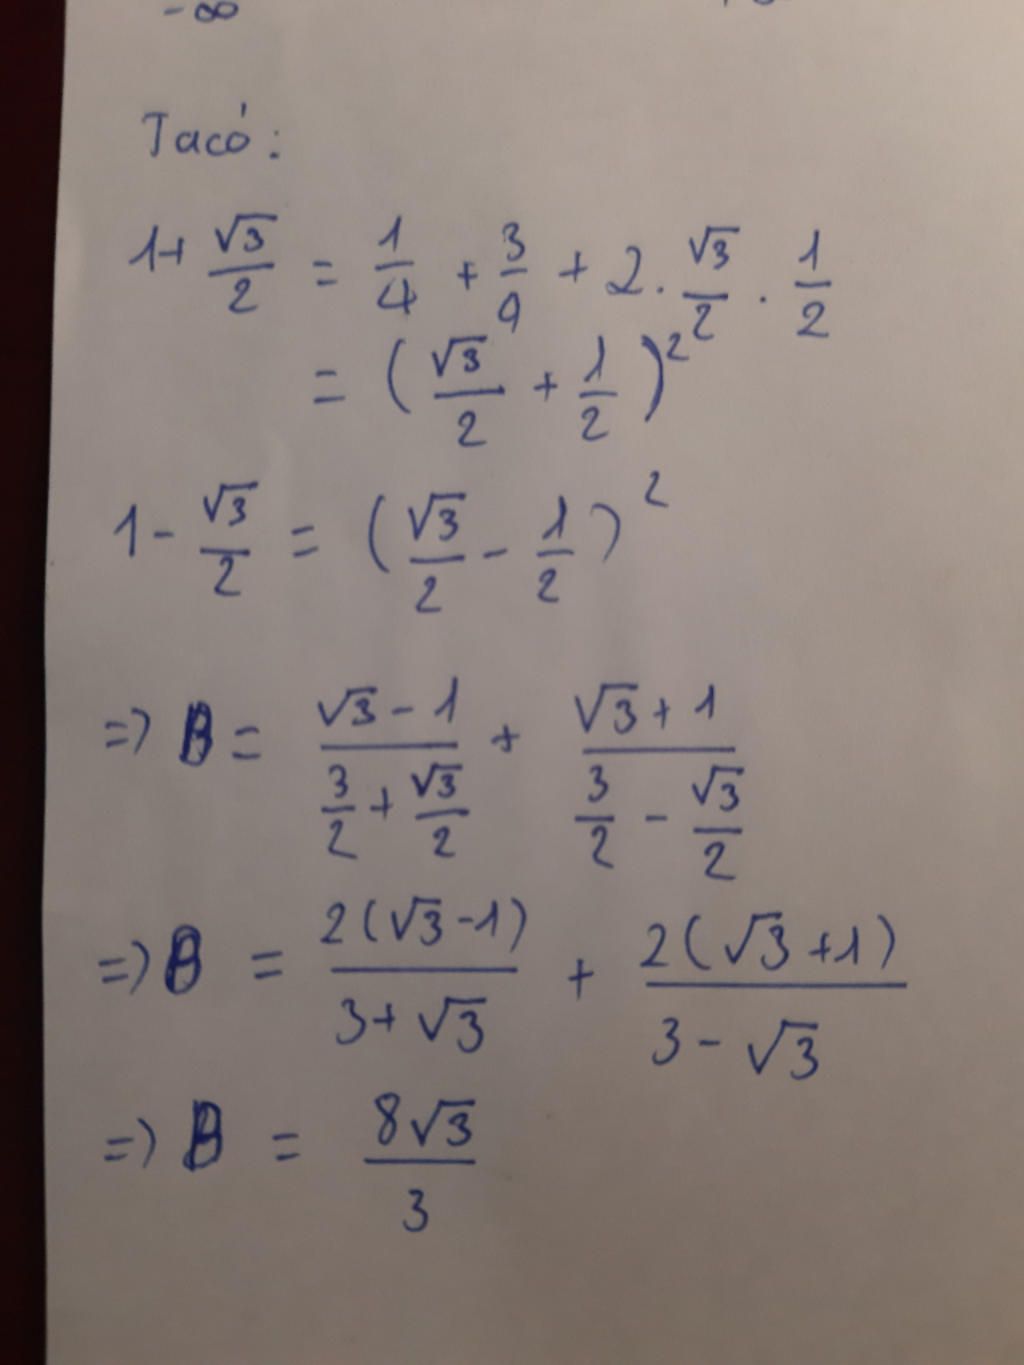 -∞
Ta có:
1+ √3/2 = 1/4 + 3/4 + 2 . √3/2 . 1/2
= (√3/2 + 1/2)²
1 - √3/2 = (√3/2 - 1/2)²
=> B = (√3 - 1)/(3/2 + √3/2) + (√3 + 1)/(3/2 - √3/2)
=> B = 2(√3 - 1)/(3 + √3) + 2(√3 + 1)/(3 - √3)
=> B = 8√3/3